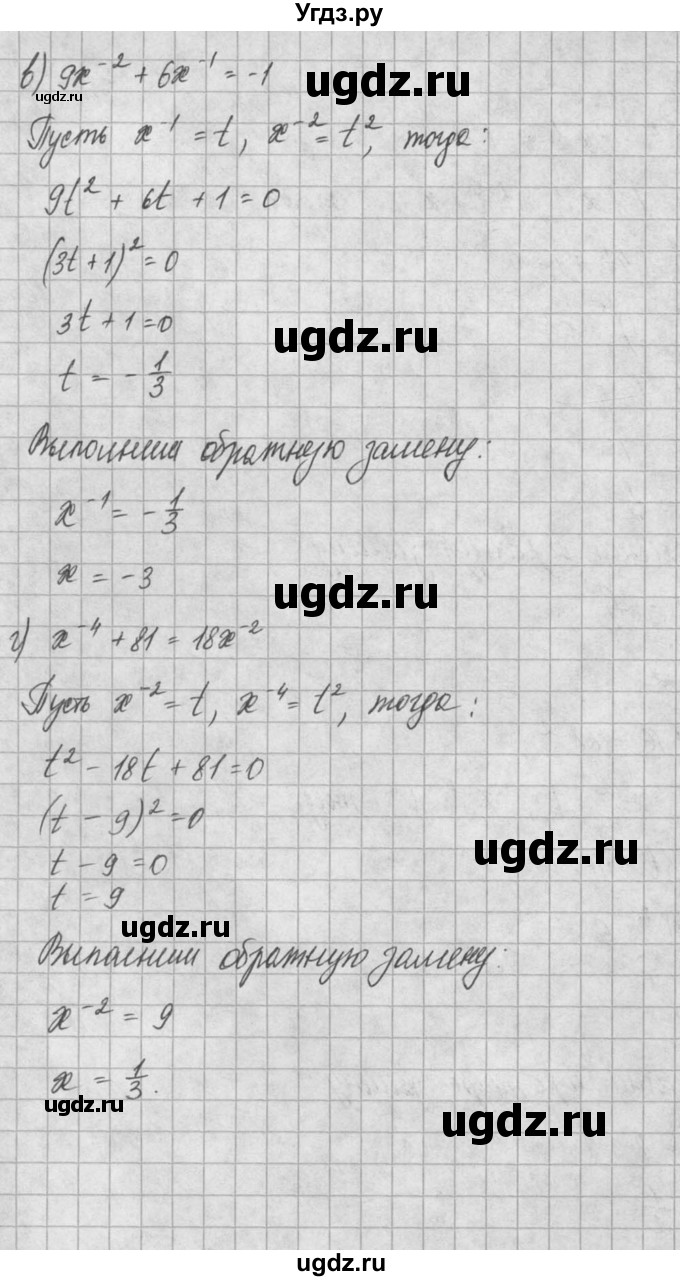 Угдз.ру
в) 9x⁻² + 6x⁻¹ = -1
ugdz.ru
ugdz.ru
Пусть x⁻¹ = t, x⁻² = t², тогда:
9t² + 6t + 1 = 0
(3t + 1)² = 0
3t + 1 = 0
ugdz.ru
t = - 1/3
Выполним обратную замену:
x⁻¹ = - 1/3
x = -3
ugdz.ru
г) x⁻⁴ + 81 = 18x⁻²
Пусть x⁻² = t, x⁻⁴ = t², тогда:
t² - 18t + 81 = 0
(t - 9)² = 0
t - 9 = 0
ugdz.ru
t = 9
ugdz.ru
Выполним обратную замену:
x⁻² = 9
x = 1/3.
ugdz.ru
ugdz.ru
ugdz.ru